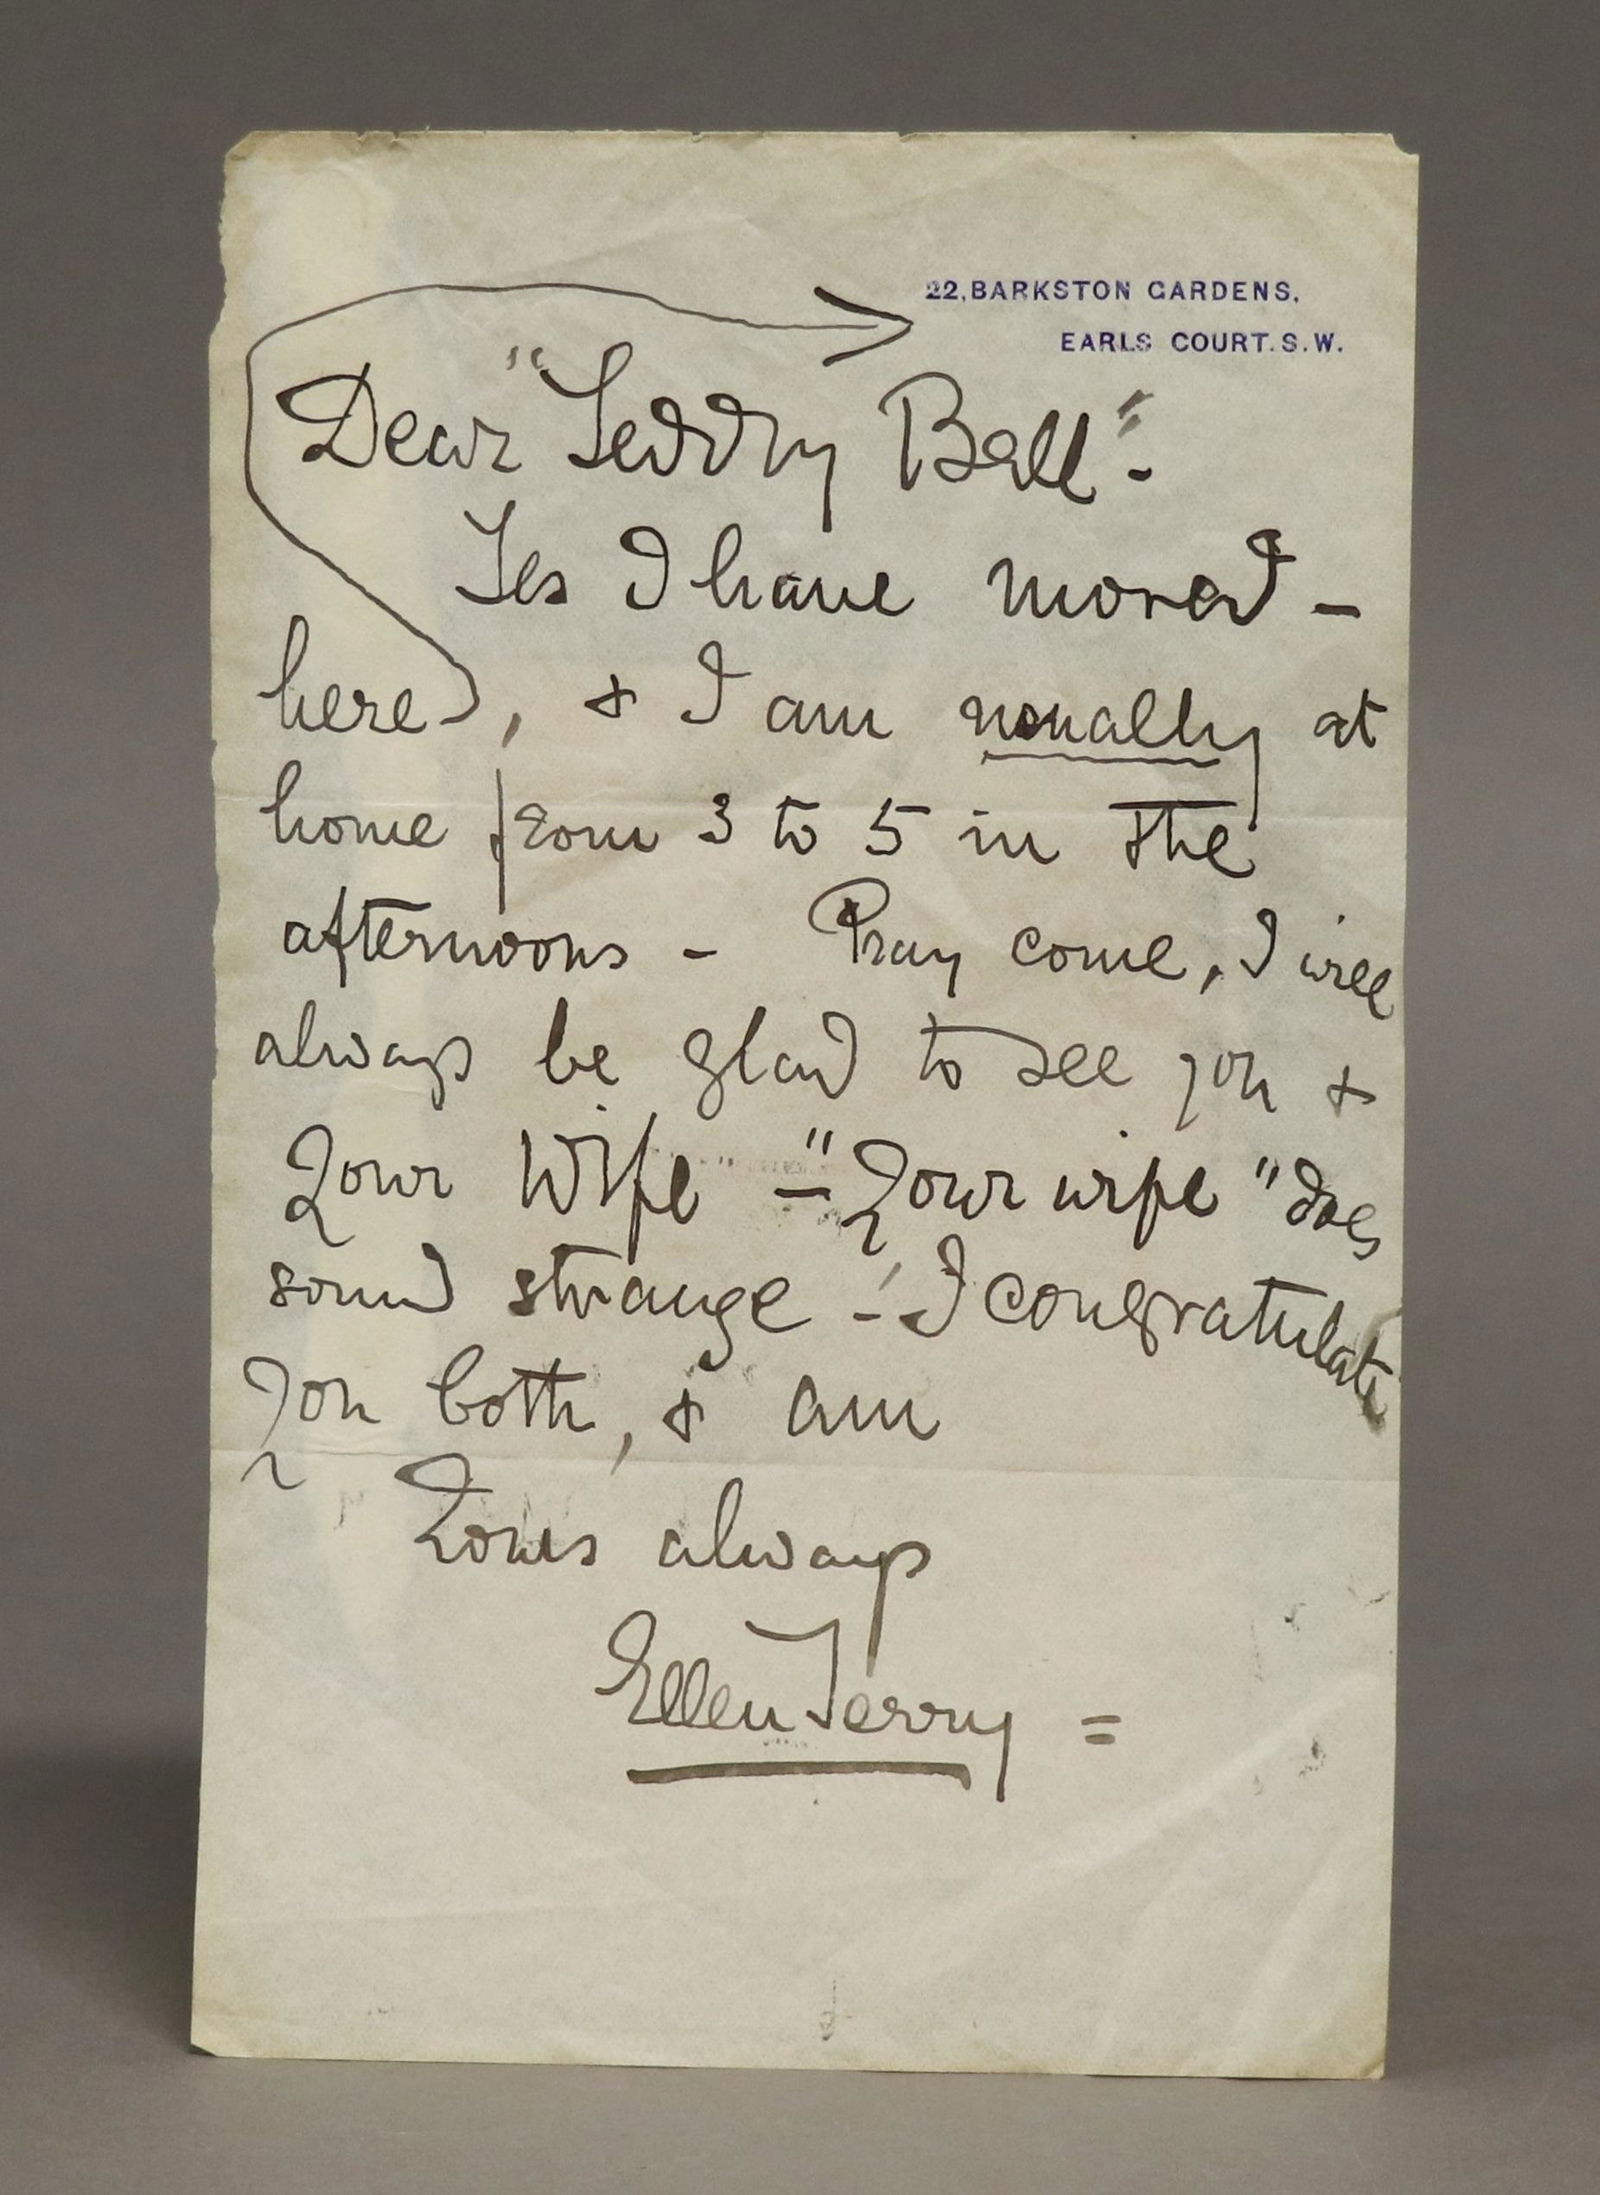 22, BARKSTON GARDENS,
EARLS COURT. S.W.
Dear "Teddy Ball" -
Yes I have moved -
here, & I am usually at
home from 3 to 5 in the
afternoons - Pray come, I will
always be glad to see you &
Your Wife - "Your wife" does
sound strange -! I congratulate
you both, & am
Yours always
Ellen Terry =